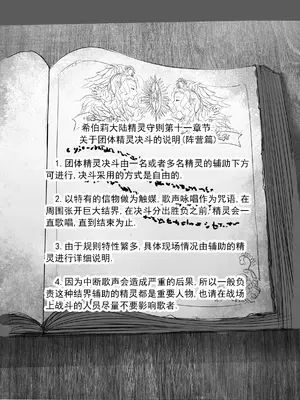 希伯莉大陆精灵守则第十一章节
关于团体精灵决斗的说明(阵营篇)
1. 团体精灵决斗由一名或者多名精灵的辅助下方
可进行, 决斗采用的方式是自由的.
2. 以特有的信物做为触媒, 歌声咏唱作为咒语, 在
周围张开巨大结界, 在决斗分出胜负之前, 精灵会一
直歌唱, 直到结束为止.
3. 由于规则特性繁多, 具体现场情况由辅助的精
灵进行详细说明.
4. 因为中断歌声会造成严重的后果, 所以一般负
责这种结界辅助的精灵都是重要人物, 也请在战场
上战斗的人员尽量不要影响歌者.